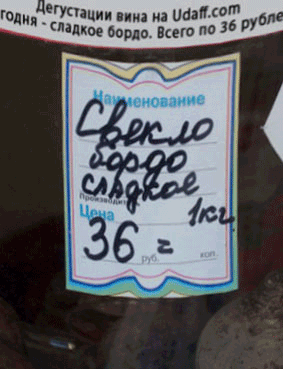 Дегустации вина на Udaff.com
годня - сладкое бордо. Всего по 36 рубле
Наименование
Свекло
бордо
сладкое
Производитель
1кг
Цена
36 =
руб. коп.